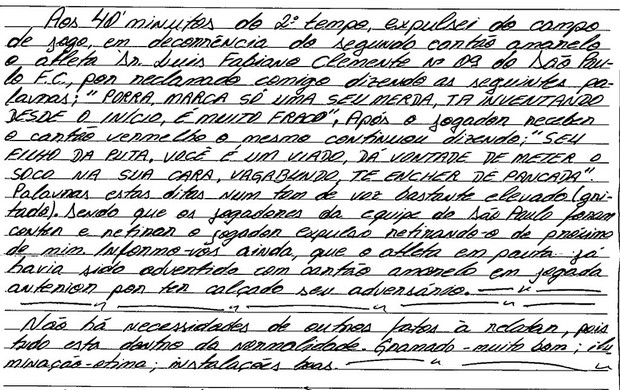 Aos 40' minutos do 2º tempo, expulsei do campo
de jogo, em decorrência do segundo cartão amarelo
o atleta Sr. Luis Fabiano Clemente nº 09 do São Pau-
lo F.C., por reclamado comigo dizendo as seguintes pa-
lavras; "PORRA, MARCA SÓ UMA SEU MERDA, TA INVENTANDO
DESDE O INÍCIO, É MUITO FRACO", Após o jogador receber
o cartão vermelho o mesmo continuou dizendo; "SEU
FILHO DA PUTA, VOCÊ É UM VIADO, DÁ VONTADE DE METER O
SOCO NA SUA CARA, VAGABUNDO, TE ENCHER DE PANCADA".
Palavras estas ditas num tom de voz bastante elevado (gri-
tado). Sendo que os jogadores da equipe do São Paulo foram
conter e retirar o jogador expulso retirando-o de próximo
de mim. Informo-vos ainda, que o atleta em pauta já
havia sido advertido com cartão amarelo em jogada
anterior por ter calçado seu adversário.
Não há necessidades de outros fatos à relatar, pois
tudo esta dentro da normalidade. Gramado - muito bom; ilu-
minação - otima; instalações boas.